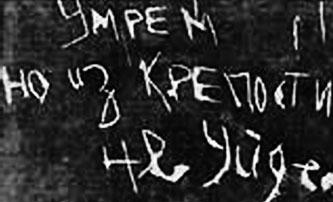 УМРЕМ
но из КРЕПОСТИ
не уйде